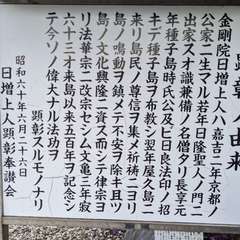 顕彰人由来
金剛院日増上人ハ嘉吉二年京都ノ
公家ニ生マル若年日隆聖人ノ門ニ
出家スオ識兼備ノ名僧タリ長享元
年種子島時氏公及ビ日良法印ノ招
キデ種子島ヲ布教シ翌年屋久島ニ
来リ島民ノ尊信ヲ集メ祈祷ニヨリ
島ノ鳴動ヲ鎮メテ不安ヲ除キ且ツ
島ノ文化興隆ニ資スル而シテ律宗ヨ
リ法華宗ニ改宗セシム文亀三年寂
六十三才来島以来五百年ヲ記念シ
テ今ソノ偉大ナル法功ヲ
顕彰スルモノナリ
昭和六十年六月二十六日
日増上人顕彰奉讃会